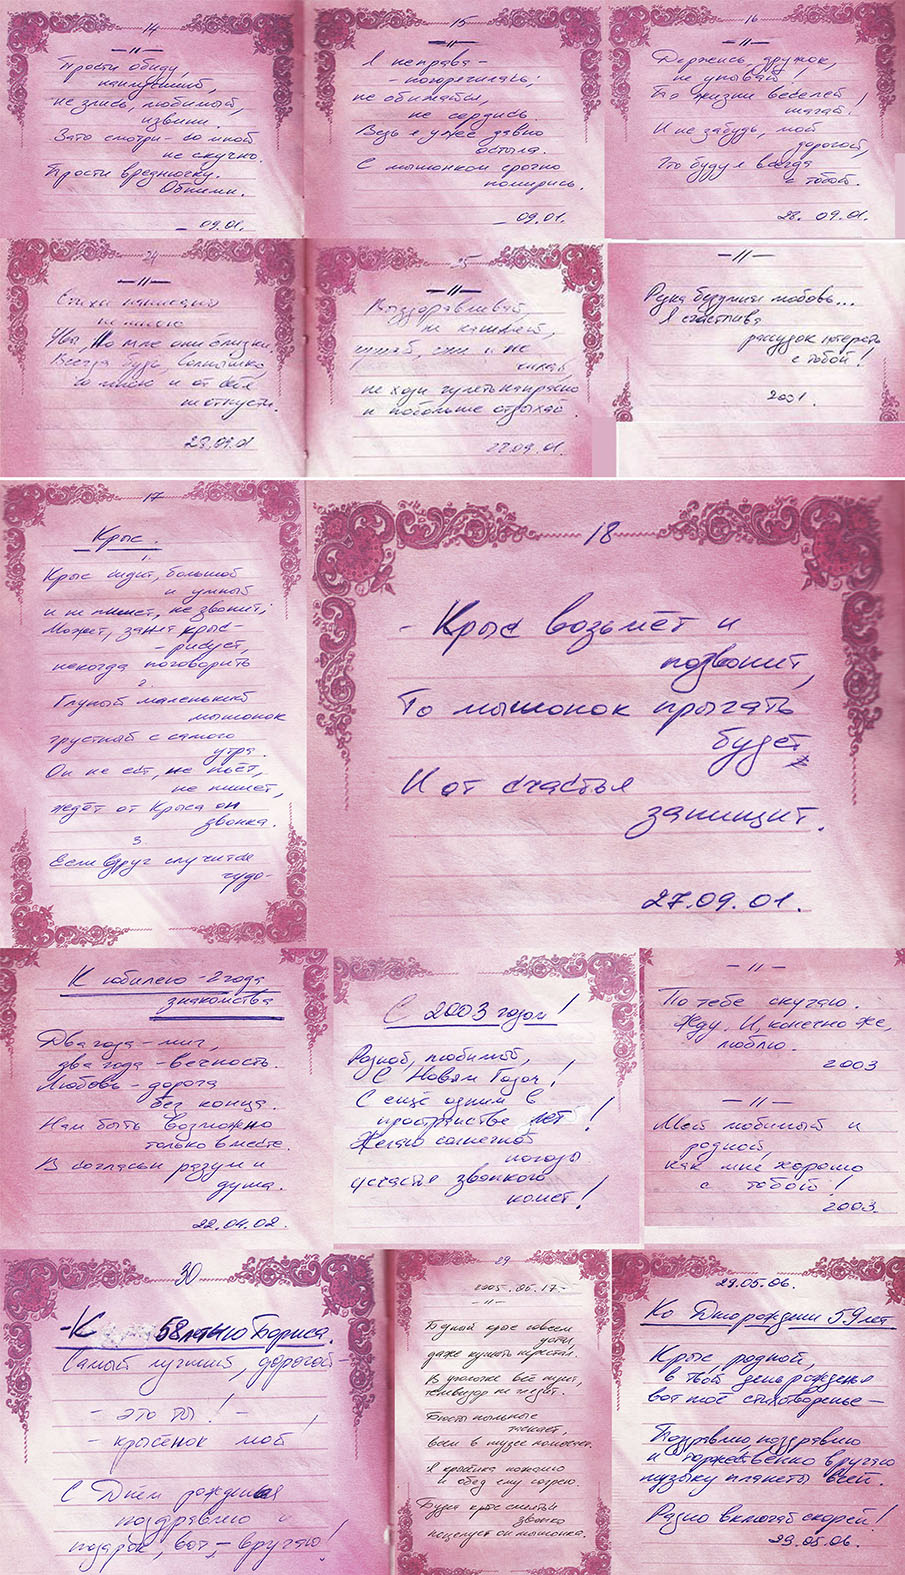 14
—"—
Прости обиду,
наилучший,
не злись, любимый,
извини.
Зато смотри – со мной
не скучно.
Прости вредночку.
Обними.
09.01.
15
—"—
Я неправа –
– погорячилась;
не обижайся,
не сердись.
Ведь я уже давно
остыла.
С мышонком срочно
помирись.
09.01.
16
—"—
Держись, дружок,
не унывай!
По жизни веселей
шагай!
И не забудь, мой
дорогой,
Что буду я всегда
с тобой.
28.09.01.
24
—"—
Стихи написаны
не мною
Увы, но мне они близки.
Всегда будь, солнышко,
со мною и от себя
не отпусти.
28.09.01
25
—"—
Выздоравливай,
не кашляй,
не чихай,
не ходи гулять напрасно
и побольше отдыхай.
27.09.01.
—"—
Рука безумная любовь...
Я счастлива
рассудок потерять
с тобой!
2001.
17
Крыс.
1.
Крыс сидит, большой
и умный
и не пишет, не звонит;
Может, занят крыс –
– рисует,
некогда поговорить
2.
Глупый маленький
мышонок
грустный с самого
утра.
Он не ест, не поёт,
не пишет,
ждёт от Крыса он
звонка.
3
Если вдруг случится
чудо –
18
– Крыс возьмёт и
позвонит,
То мышонок прыгать
будет
И от счастья
запищит.
27.09.01.
К юбилею – 2 года
знакомства
Два года – миг,
два года – вечность.
Любовь – дорога
без конца.
Нам быть возможно
только вместе.
В согласьи разум и
душа.
22.04.02.
С 2003 годом!
Родной, любимый,
С Новым Годом!
С ещё одним в
пространстве лет!
Желаю солнечной
погоды
и счастья звонкого
комет!
—"—
По тебе скучаю.
Жду. И, конечно же,
люблю.
2003
—"—
Мой любимый и
родной,
как мне хорошо
с тобой!
2003.
30
– К 58летию Бориса.
Самый лучший, дорогой –
– это ты! –
– крысёнок мой!
С Днём рождения
поздравляю и
подарок, вот – вручаю!
29
2005.06.17-
—"—
Бедный крыс совсем
устал,
даже кушать перестал.
В уголочке всё сидит,
телевизор не глядит.
Бюсты пыльные
таскает,
всем в музее помогает.
Я крыстика пожалею
и обед ему согрею.
Будет крыс смеяться
звонко
поцелует он мышонка.
29.05.06.
Ко Дню рождения 59 лет
Крыс родной,
в твой день рожденья
вот моё стихотворенье –
Поздравляю, поздравляю
и торжественно вручаю
музыку планеты всей.
Радио включай скорей!
29.05.06.